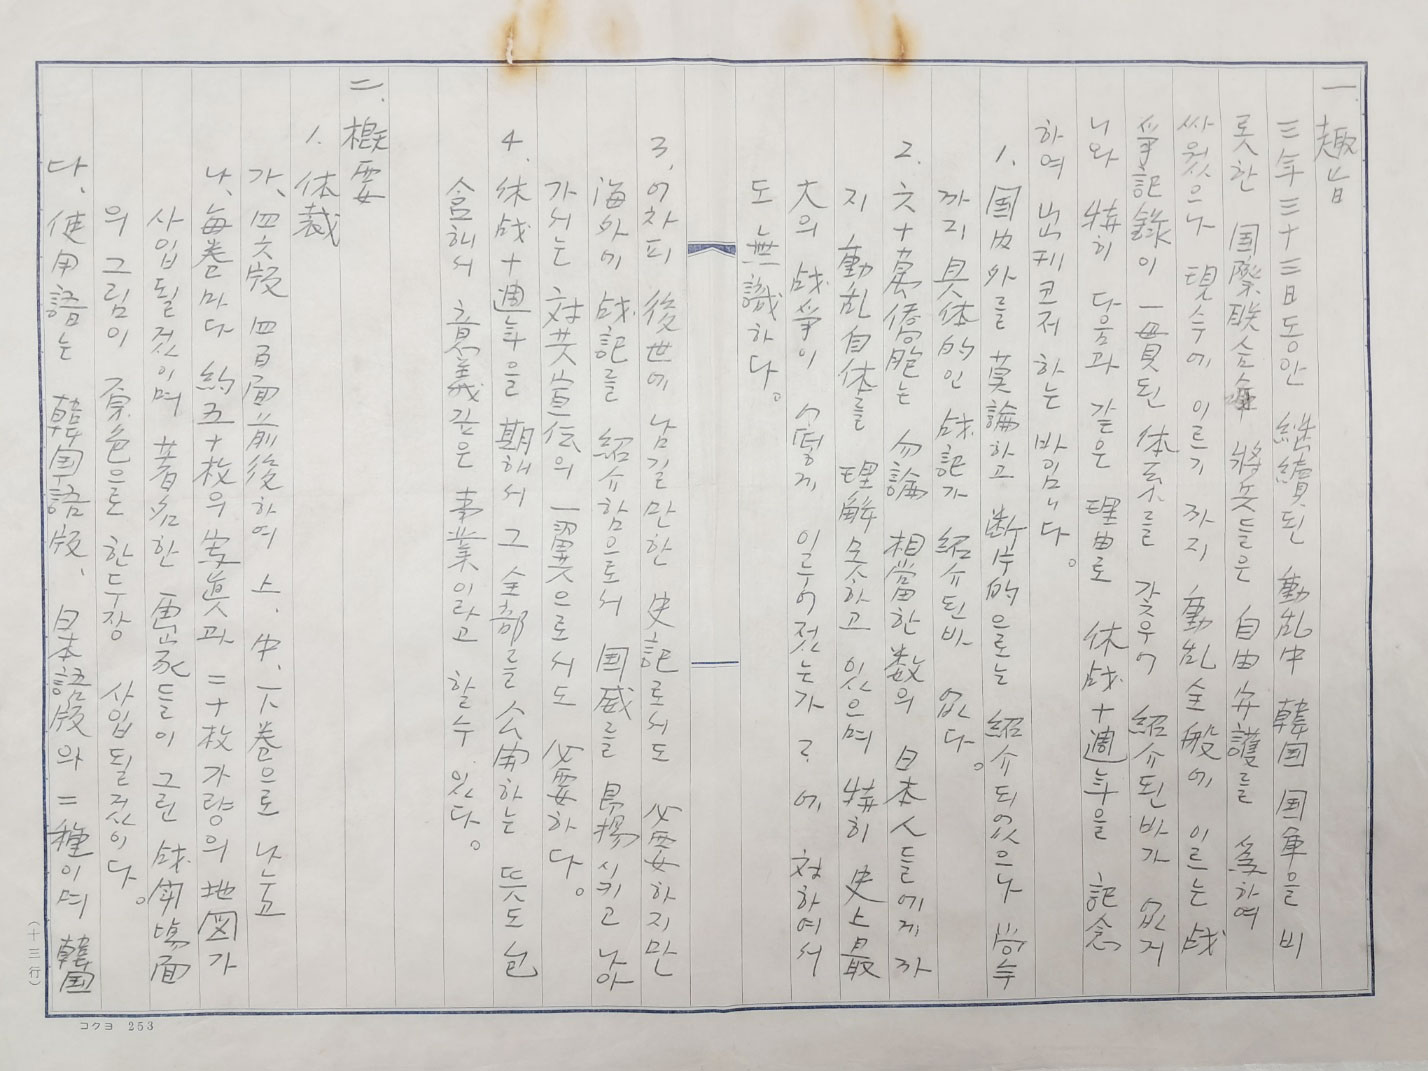 一. 趣旨
三年三十三日동안 継續된 動乱中 韓国 国軍을 비
롯한 国際联合 將兵들은 自由守護를 爲하여
싸웠으나 現今에 이르기 까지 動乱全般에 이르는 战
爭記錄이 一貫된 体系를 갖추어 紹介된바가 없거
니와 特히 다음과 같은 理由로 休战十週年을 記念
하여 出刊코저 하는 바입니다。
1. 国内外를 莫論하고 断片的으로는 紹介되었으나 尙今
까지 具体的인 战記가 紹介된바 없다。
2. 六十萬僑胞는 勿論 相當한 数의 日本人들에게 까
지 動乱自体를 理解못하고 있으며 特히 史上最
大의 战爭이 어떻게 일루어졌는가? 에 対하여서
도 無識하다。
3. 어차피 後世에 남길만한 史記로서도 必要하지만
海外에 战記를 紹介함으로서 国威를 昻揚시키고 나아
가서는 対共宣伝의 一翼으로서도 必要하다。
4. 休战十週年을 期해서 그 全部를 公開하는 뜻도 包
含해서 意義깊은 事業이라고 할수 있다。
二. 概要
1. 体裁
가、四六版 四百面前後하여 上、中、下卷으로 나눔
나、每卷마다 約五十枚의 写眞과 二十枚가량의 地図가
삽입될것이며 著名한 画家들이 그린 战鬪場面
의 그림이 原色으로 한두장 삽입될것이다。
다、使用語는 韓国語版、日本語版의 二種이며 韓国
(十三行)
コクヨ 253